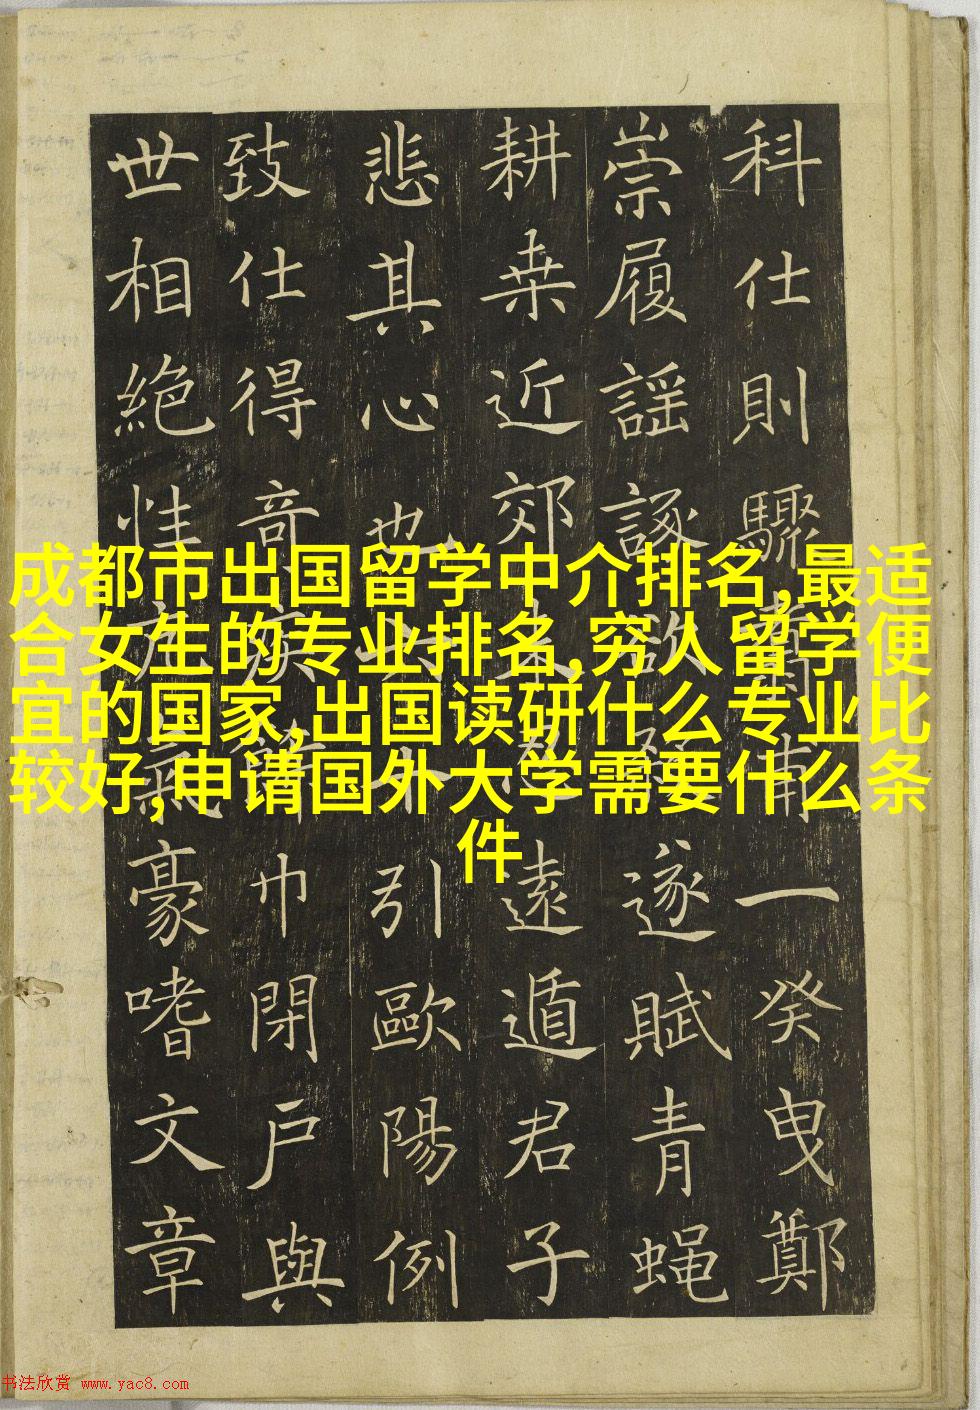 科仕則驟甫一癸曳鄭
崇履謡諑遂賦青蝇
耕桒近郊遠遁君子
悲其心也引歐陽例
致仕得奇疾巾閉戸與
世相絶性豪嗜文章
成都市出国留学中介排名,最适
合女生的专业排名,穷人留学便
宜的国家,出国读研什么专业比
较好,申请国外大学需要什么条
件
书法欣赏 www.yac8.com